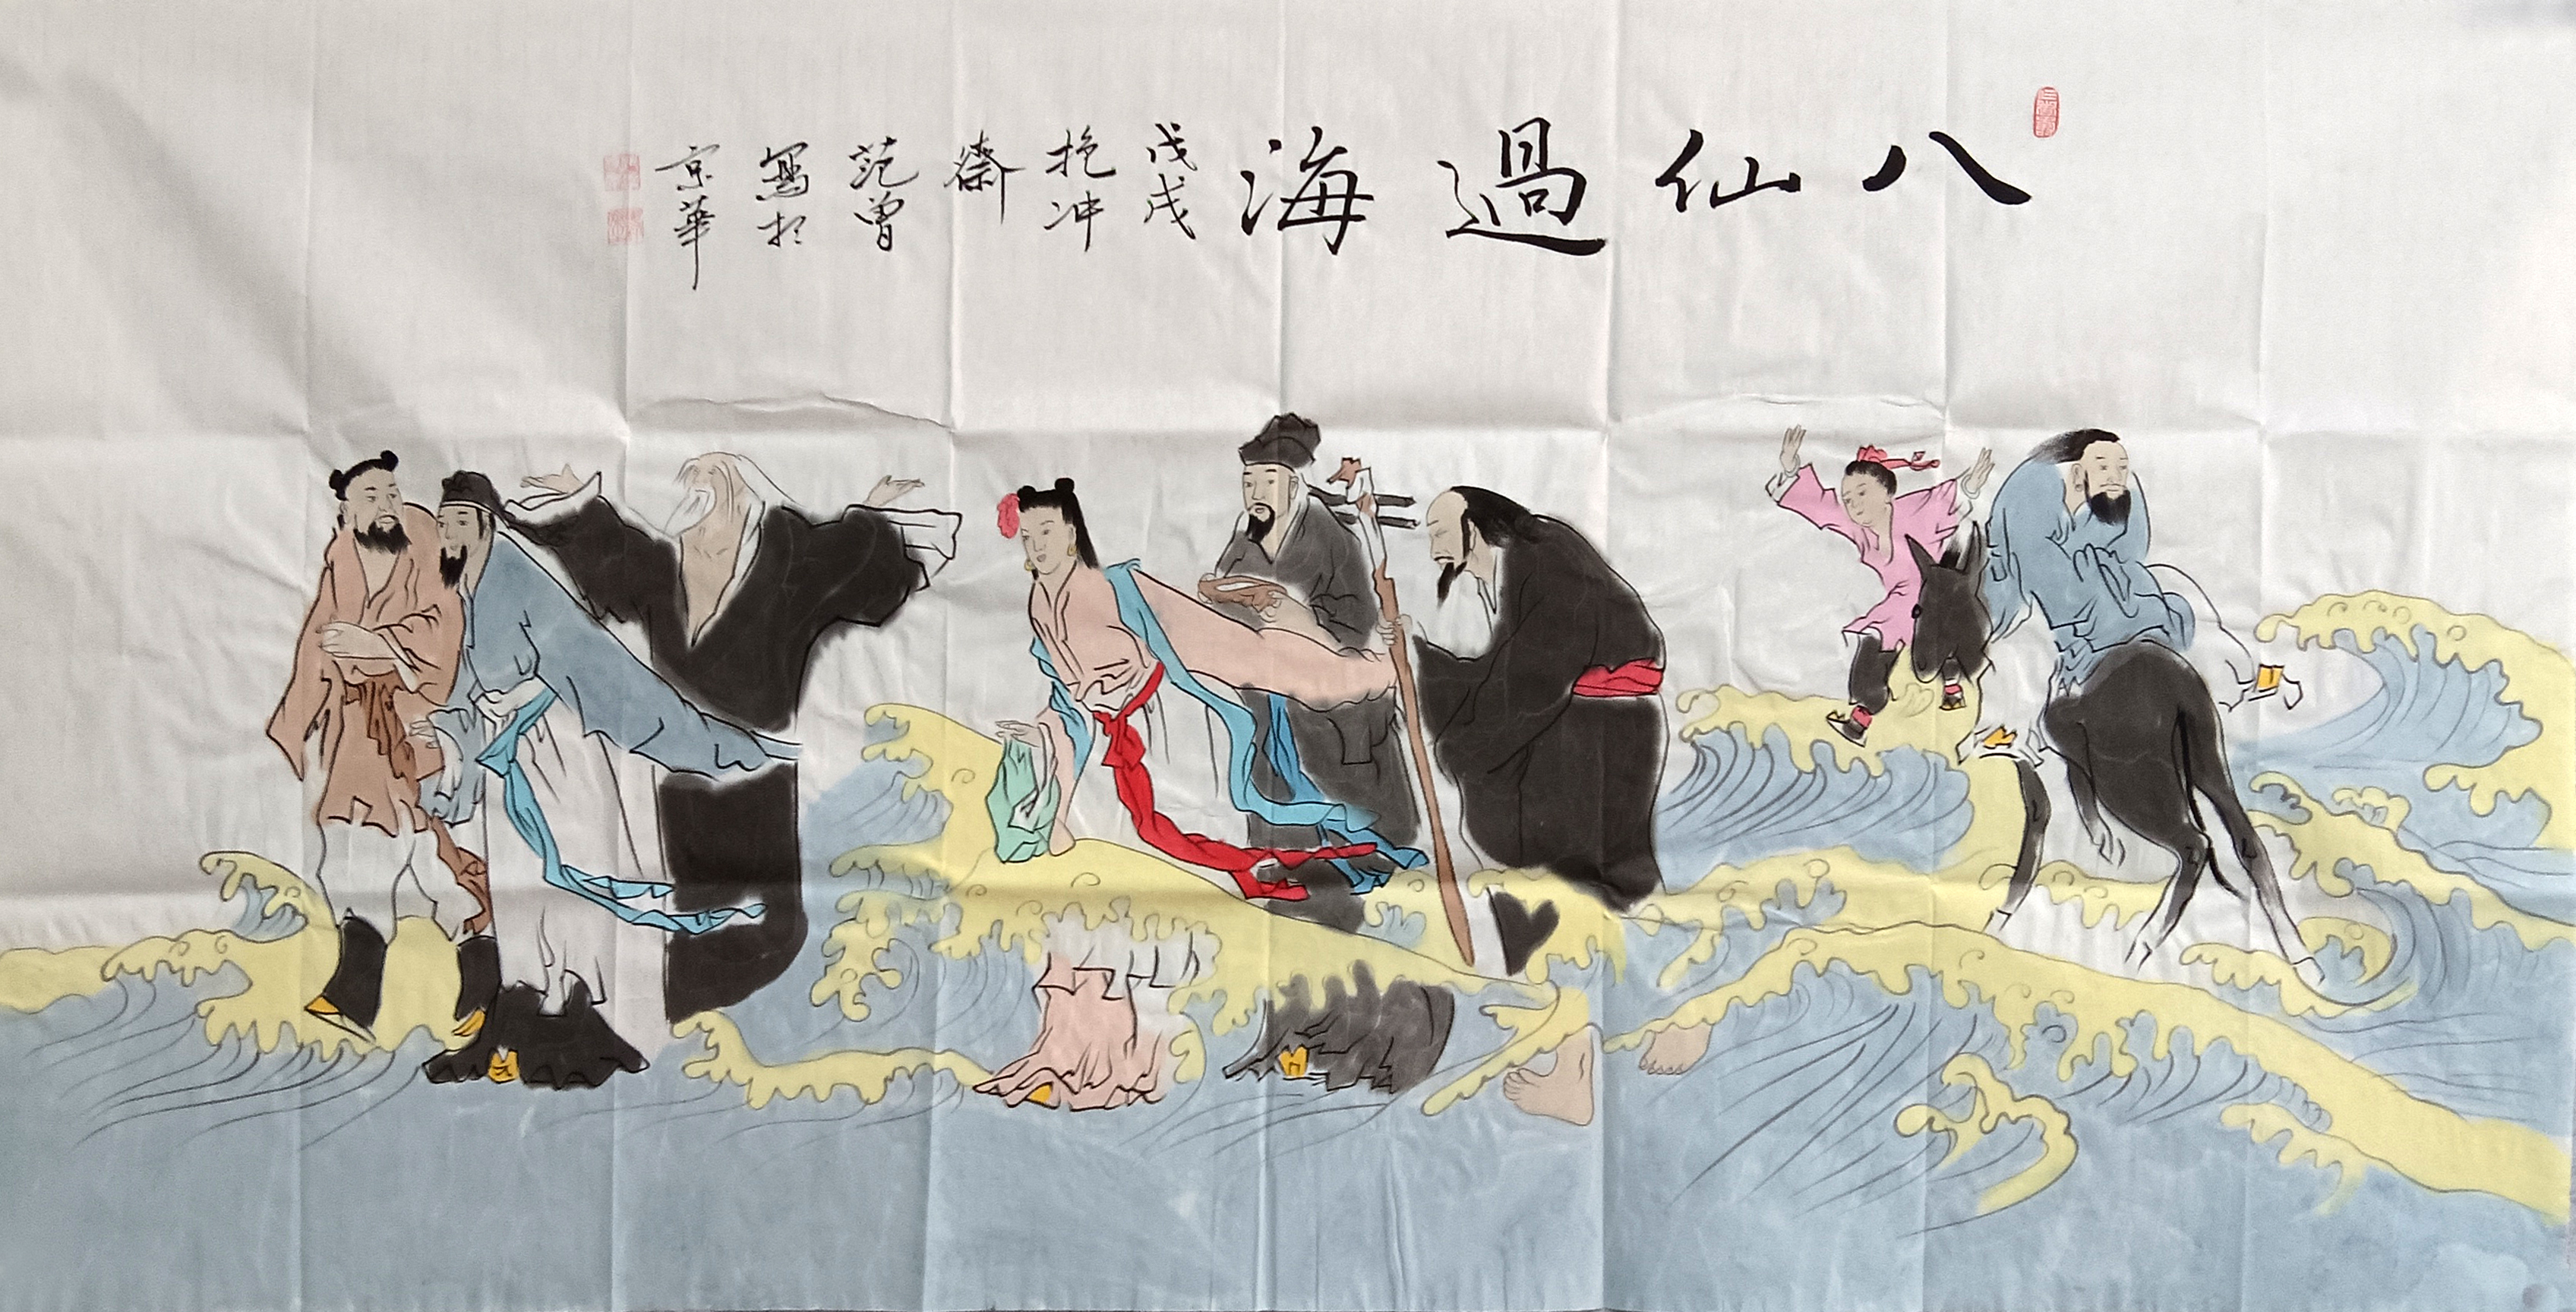 八仙過海
戊戌
抱冲
齋
范曾
寫於
京華